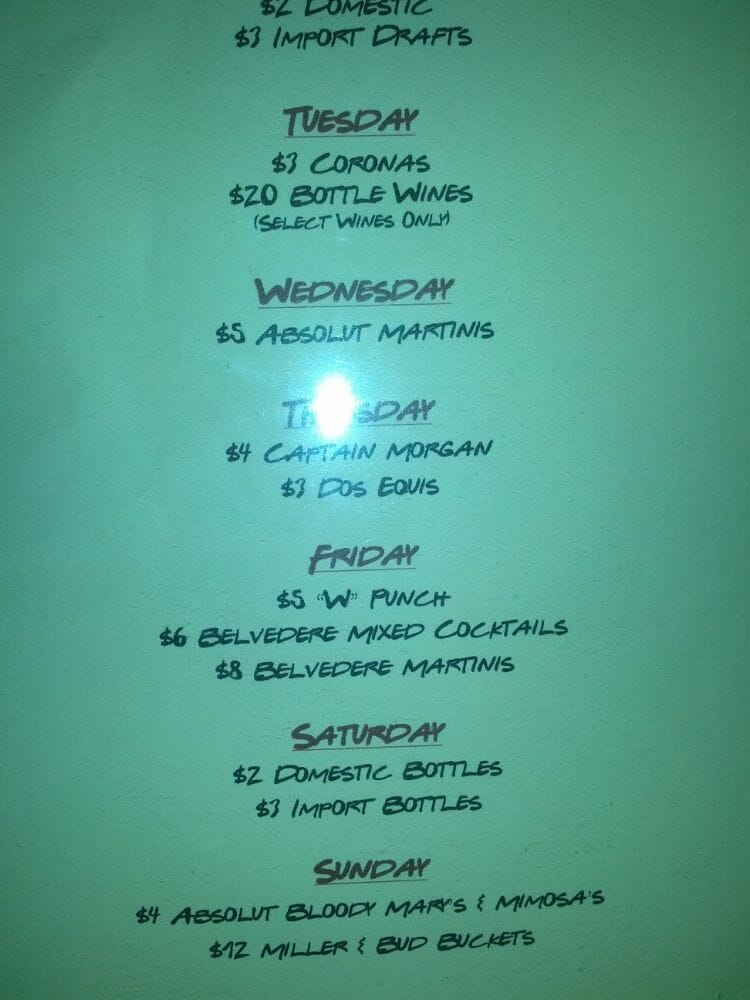 $2 Domestic
$3 Import Drafts
Tuesday
$3 Coronas
$20 Bottle Wines
(Select Wines Only)
Wednesday
$5 Absolut Martinis
Thursday
$4 Captain Morgan
$3 Dos Equis
Friday
$5 "W" Punch
$6 Belvedere Mixed Cocktails
$8 Belvedere Martinis
Saturday
$2 Domestic Bottles
$3 Import Bottles
Sunday
$4 Absolut Bloody Mary's & Mimosa's
$12 Miller & Bud Buckets